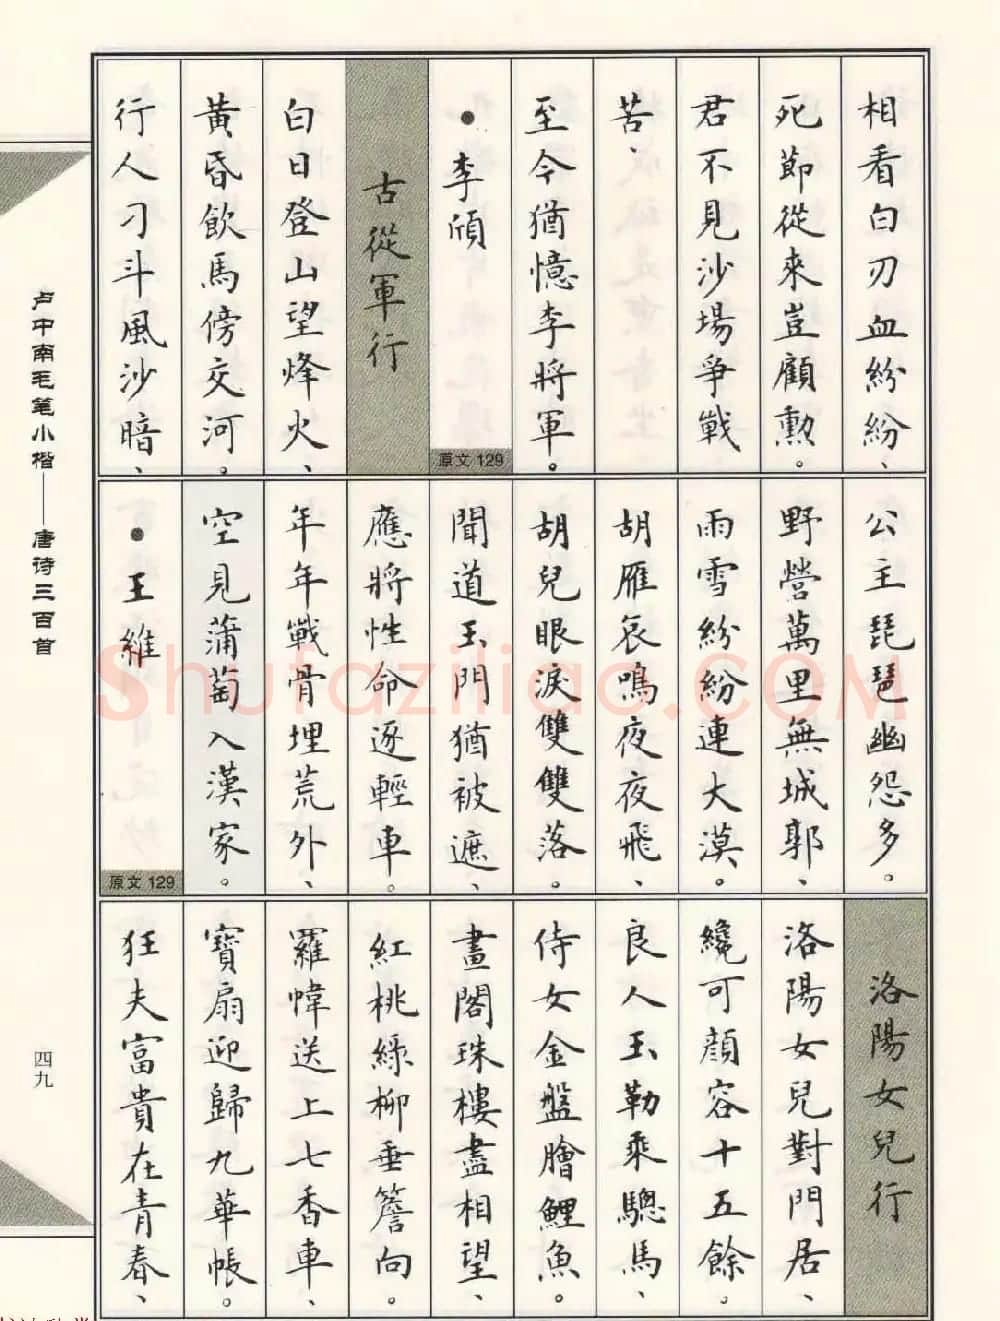 相看白刃血紛紛、
死節從來豈顧勲。
君不見沙場爭戰
苦、
至今猶憶李將軍。
•李頎
原文 129
古從軍行
白日登山望烽火、
黃昏飲馬傍交河。
行人刁斗風沙暗、
公主琵琶幽怨多。
野營萬里無城郭、
雨雪紛紛連大漠。
胡雁哀鳴夜夜飛、
胡兒眼淚雙雙落。
聞道玉門猶被遮、
應將性命逐輕車。
年年戰骨埋荒外、
空見蒲萄入漢家。
•王維
原文 129
洛陽女兒行
洛陽女兒對門居、
纔可顏容十五餘。
良人玉勒乘驄馬、
侍女金盤膾鯉魚。
畫閣珠樓盡相望、
紅桃綠柳垂簷向。
羅幃送上七香車、
寶扇迎歸九華帳。
狂夫富貴在青春、
卢中南毛笔小楷——唐诗三百首
四九
Shufaziliao.COM